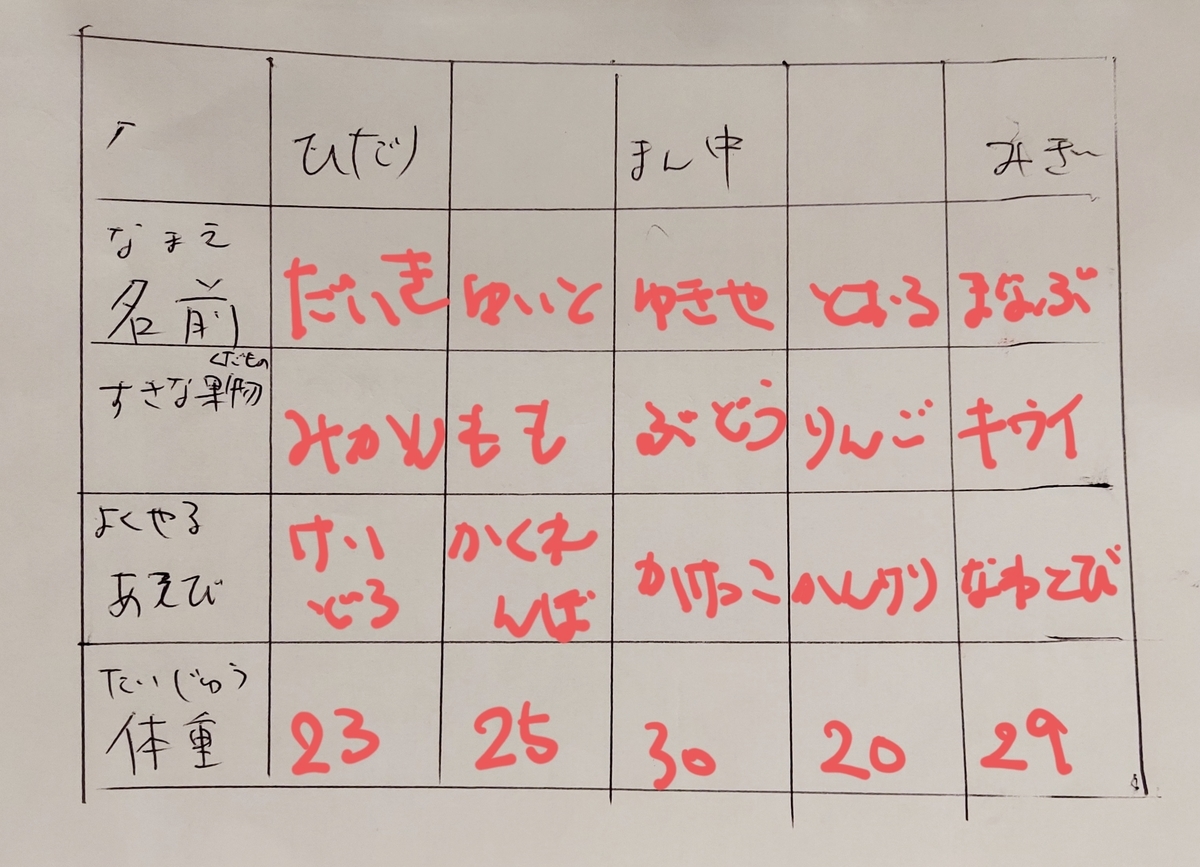 ひだり まん中 みぎ
なまえ
名前 だいき ゆいと ゆきや とおる まなぶ
くだもの
すきな果物 みかん もも ぶどう りんご キウイ
よくやる
あそび けいどろ かくれんぼ かけっこ かんけり なわとび
たいじゅう
体重 23 25 30 20 29